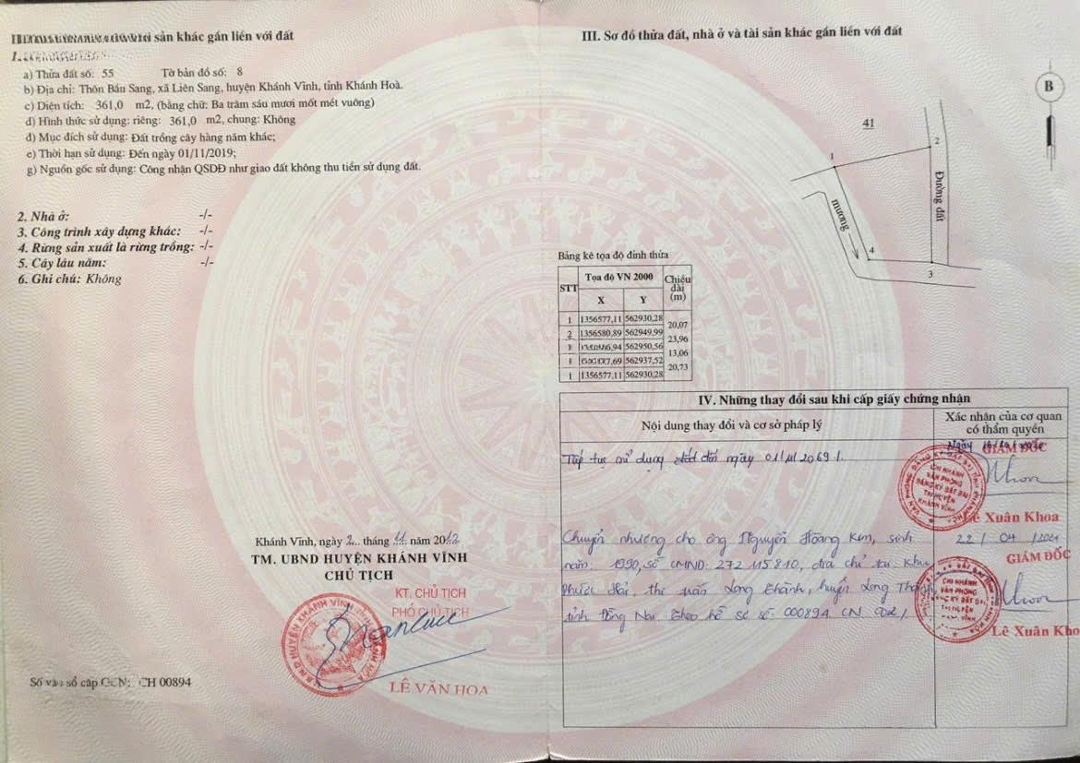 sản khác gắn liền với đất
a) Thửa đất số: 55 Tờ bản đồ số: 8
b) Địa chỉ: Thôn Bầu Sang, xã Liên Sang, huyện Khánh Vĩnh, tỉnh Khánh Hoà.
c) Diện tích: 361,0 m2, (bằng chữ: Ba trăm sáu mươi mốt mét vuông)
d) Hình thức sử dụng: riêng: 361,0 m2, chung: Không
đ) Mục đích sử dụng: Đất trồng cây hàng năm khác;
e) Thời hạn sử dụng: Đến ngày 01/11/2019;
g) Nguồn gốc sử dụng: Công nhận QSDĐ như giao đất không thu tiền sử dụng đất.
2. Nhà ở: -/-
3. Công trình xây dựng khác: -/-
4. Rừng sản xuất là rừng trồng: -/-
5. Cây lâu năm: -/-
6. Ghi chú: Không
Khánh Vĩnh, ngày 2 tháng 11 năm 2012
TM. UBND HUYỆN KHÁNH VĨNH
CHỦ TỊCH
KT. CHỦ TỊCH
PHÓ CHỦ TỊCH
LÊ VĂN HOA
Số vào sổ cấp GCN: CH 00894
III. Sơ đồ thửa đất, nhà ở và tài sản khác gắn liền với đất
B
41
1
2
Đường đất
mương
4
3
Bảng kê tọa độ đỉnh thửa
STT Tọa độ VN 2000 Chiều dài (m)
X Y
1 1356577,11 562930,28
20,07
2 1356580,89 562949,99
23,96
3 562950,56
13,06
562937,52
20,73
1 1356577,11 562930,28
IV. Những thay đổi sau khi cấp giấy chứng nhận
Nội dung thay đổi và cơ sở pháp lý
Xác nhận của cơ quan có thẩm quyền
Tiếp tục sử dụng đất đến ngày 01/11/2069.
Ngày
GIÁM ĐỐC
CHI NHÁNH
VĂN PHÒNG
ĐĂNG KÝ ĐẤT ĐAI
TẠI HUYỆN
KHÁNH VĨNH
Lê Xuân Khoa
Chuyển nhượng cho ông Nguyễn Hoàng Kim, sinh
năm: 1990, số CMND: 272115810, địa chỉ tại Khu
Phước Hải, thị trấn Long Thành, huyện Long Thành,
tỉnh Đồng Nai. Theo hồ sơ số 000894. CN
22/04/2021
GIÁM ĐỐC
CHI NHÁNH
VĂN PHÒNG
Lê Xuân Kho